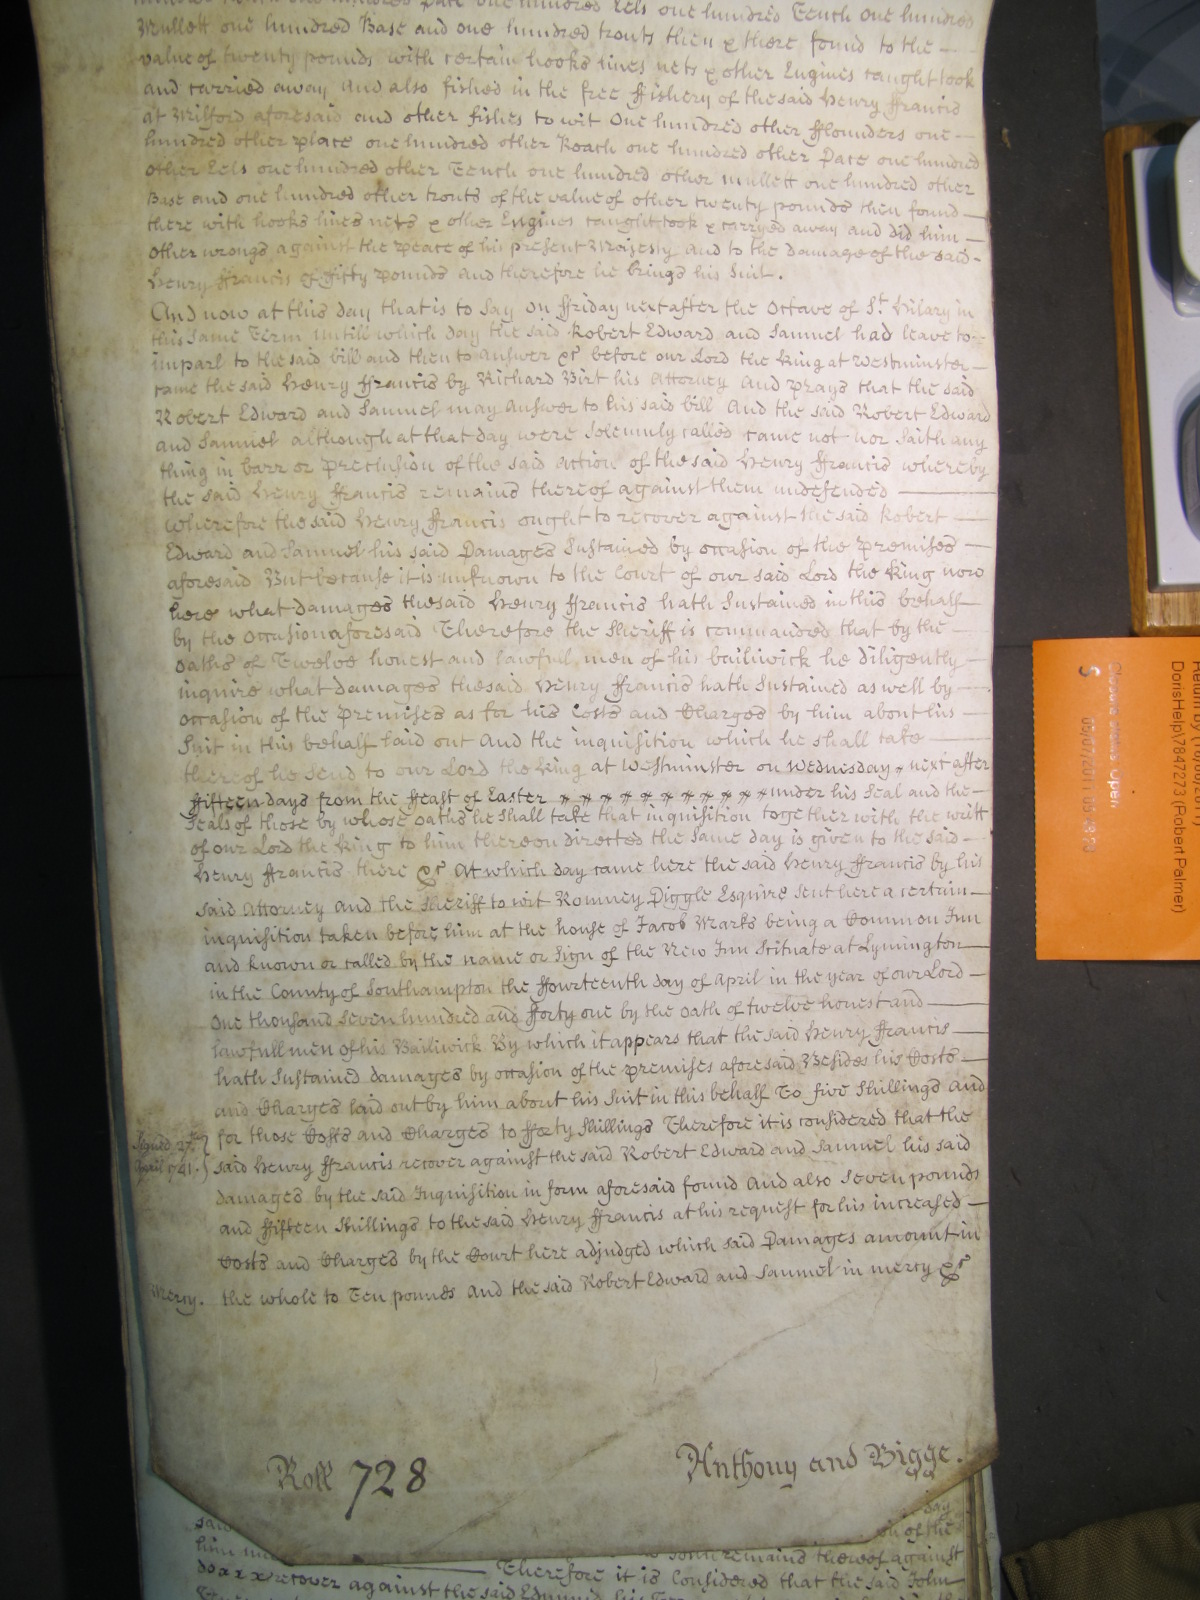 one hundred Dace one hundred Eels one hundred Tench one hundred
Mullett one hundred Base and one hundred trouts then & there found to the
value of twenty pounds with certain hooks lines nets & other Engines caught took
and carried away And also fished in the free ffishery of the said Henry ffrancis
at Milford aforesaid and other fishes to wit One hundred other fflounders one
hundred other place one hundred other Roach one hundred other Dace one hundred
other Eels one hundred other Tench one hundred other mullett one hundred other
Base and one hundred other trouts of the value of other twenty pounds then found
there with hooks lines nets & other Engines caught took & carryed away and did him
other wrongs against the peace of his present Majesty and to the damage of the said
Henry ffrancis of ffifty pounds And therefore he brings his Suit.
And now at this day that is to say on ffriday next after the Octave of St. Hilary in
this same Term untill which day the said Robert Edward and Samuel had leave to
imparl to the said bill and then to answer &c before our Lord the King at Westminster
came the said Henry ffrancis by Richard Birt his Attorney And prays that the said
Robert Edward and Samuel may answer to his said bill And the said Robert Edward
and Samuel although at that day were solemnly called came not nor saith any
thing in barr or preclusion of the said action of the said Henry ffrancis whereby
the said Henry ffrancis remains thereof against them undefended
Wherefore the said Henry ffrancis ought to recover against the said Robert
Edward and Samuel his said Damages Sustained by occasion of the premises
aforesaid But because it is unknown to the Court of our said Lord the King now
here what damages the said Henry ffrancis hath Sustained in this behalf
by the occasion aforesaid Therefore the Sheriff is commanded that by the
oaths of Twelve honest and lawfull men of his bailiwick he diligently
inquire what damages the said Henry ffrancis hath Sustained as well by
occasion of the premises as for his Costs and Charges by him about his
Suit in this behalf laid out And the inquisition which he shall take
thereof he send to our Lord the King at Westminster on Wednesday next after
ffifteen days from the ffeast of Easter under his Seal and the
Seals of those by whose oaths he shall take that inquisition together with the writt
of our Lord the King to him thereon directed the same day is given to the said
Henry ffrancis there &c At which day came here the said Henry ffrancis by his
said Attorney and the Sheriff to wit Romney Diggle Esquire sent here a certain
inquisition taken before him at the house of Jacob Marks being a Common Inn
and known or called by the name or Sign of the New Inn Scituate at Lymington
in the County of Southampton the ffourteenth day of April in the year of our Lord
One thousand Seven hundred and fforty one by the oath of twelve honest and
lawfull men of his Bailiwick By which it appears that the said Henry ffrancis
hath Sustained damages by occasion of the premises aforesaid Besides his Costs
and Charges laid out by him about his Suit in this behalf To five Shillings and
for those Costs and Charges to fforty Shillings Therefore it is considered that the
Signed 27th
April 1741.
said Henry ffrancis recover against the said Robert Edward and Samuel his said
damages by the said Inquisition in form aforesaid found And also Seven pounds
and ffifteen Shillings to the said Henry ffrancis at his request for his increased
Costs and Charges by the Court here adjudged which said Damages amount in
Mercy. the whole to Ten pounds And the said Robert Edward and Samuel in mercy &c
Roll 728 Anthony and Bigge.
said say
him on of the
remain thereof against
Therefore it is Considered that the said John
recover against the said Edmund his
DorisHelp\7847273 (Robert Palmer)